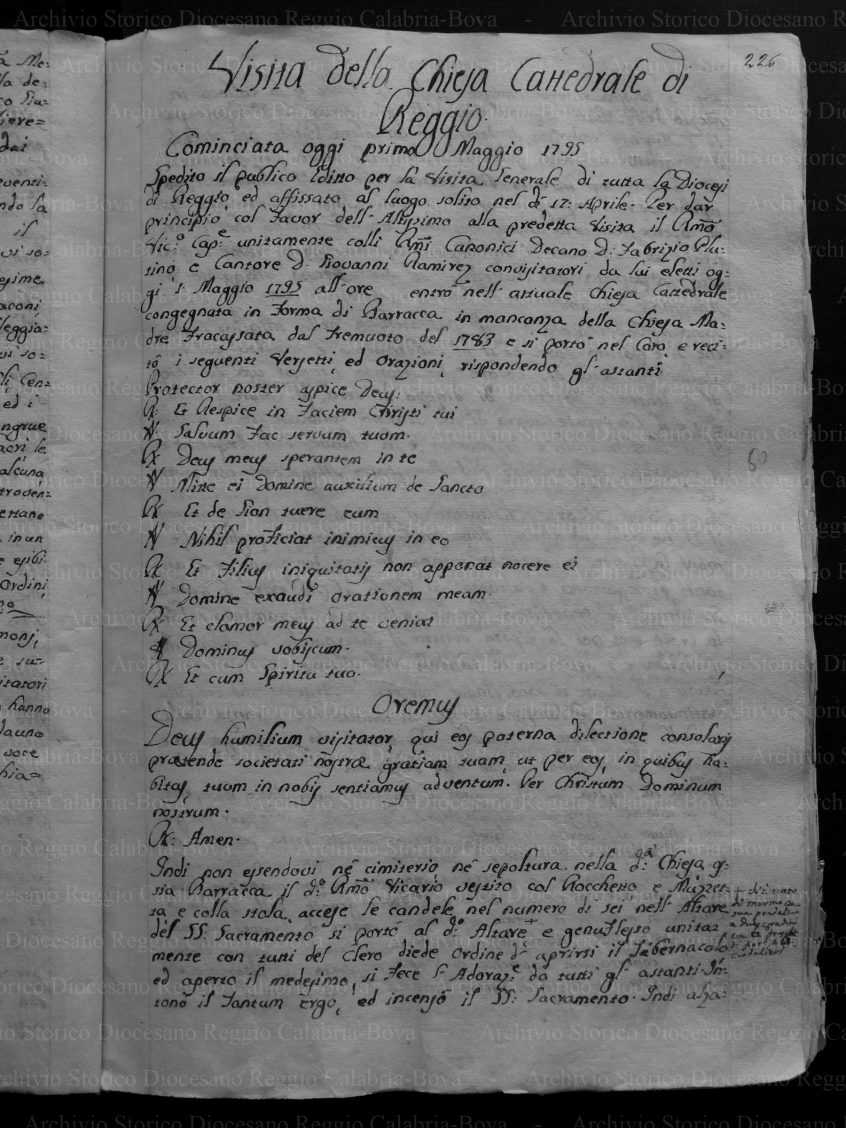 226
Visita della Chiesa Cattedrale di
Reggio.
Cominciata oggi primo Maggio 1795
Spedito il publico Editto per la Visita Generale di tutta la Diocesi
di Reggio, ed affissato al luogo solito nel dì 17: Aprile. Per dar
principio col favor dell'Altissimo alla predetta Visita il Rmo
Vic.o Cap.e unitamente colli Rmi Canonici Decano D: Fabrizio Plu:
tino, e Cantore D: Giovanni Ramirez convisitatori da lui eletti og:
gi 1: Maggio 1795 all'ore entrò nell'attuale Chiesa Cattedrale
congegnata in forma di Barracca in mancanza della Chiesa Ma:
dre fracassata dal Tremuoto del 1783 e si portò nel Coro, e reci:
tò i seguenti Versetti, ed Orazioni, rispondendo gl'astanti
Protector noster aspice Deus:
R: Et Respice in faciem Christi tui
V: Salvum fac servum tuum.
R Deus meus sperantem in te
V Mitte ei Domine auxilium de Sancto
R Et de Sion tuere eum
V Nihil proficiat inimicus in eo
R Et Filius iniquitatis non apponat nocere ei
V Domine exaudi orationem meam.
R Et clamor meus ad te veniat
V Dominus vobiscum.
R Et cum Spiritu tuo.
Oremus
Deus humilium visitator, qui eos paterna dilectione consolaris
prætende societati nostræ gratiam tuam, ut per eos, in quibus ha:
bitas, tuum in nobis sentiamus adventum. Per Christum Dominum
nostrum.
R: Amen.
Indi non essendovi nè cimiterio nè sepoltura nella d.a Chiesa, o
sia Barracca il d.o Rmo Vicario vestito col Rocchetto, e Mozzet:
ta e colla stola, accese le candele nel numero di sei nell'Altare
del SS: Sacramento si portò al d.o Altare, e genuflesso unita:
mente con tutti del Clero diede Ordine d' aprirsi il Tabernacolo
ed aperto il medesimo, si fece l'Adoraz.e da tutti gl'astanti. In:
tonò il Tantum Ergo, ed incensò il SS: Sacramento. Indi alza:
Archivio Storico Diocesano Reggio Calabria-Bova